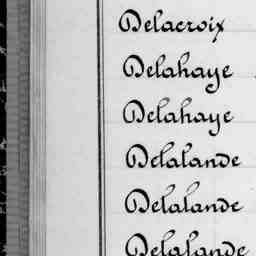 Delacroix
Delahaye
Delahaye
Delalande
Delalande
Delalande